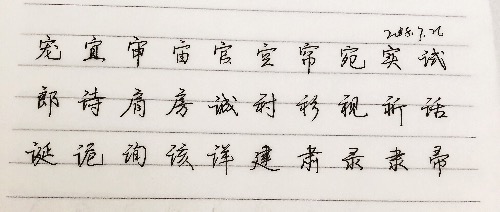 宠宜审宙官空帘宛实试
郎诗肩房诚衬衫视祈话
诞诡询该详建肃录隶帚